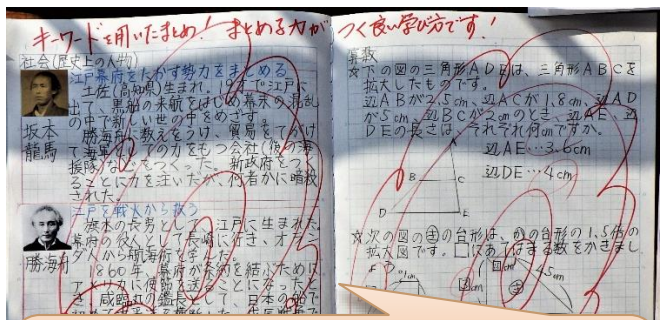 キーワードを用いたまとめ！まとめる力がつく良い学び方です！
社会（歴史上の人物）
江戸幕府をたおす勢力をまとめる
土佐（高知県）生まれ。19才で江戸に
出て、黒船の来航をはじめ幕末の混乱
の中で新しい世の中をめざす。
坂本龍馬
勝海舟に教えをうけ、貿易をてがけ
て海軍の力をもつ会社（後の海
援隊）などをつくった。新政府をつく
ることに力を注いだが、何者かに暗殺
された。
江戸を戦火から救う
旗本の長男として、江戸に生まれた。
幕府の役人として長崎に行き、オラン
ダ人から航海術を学んだ。
勝海舟
1860年、幕府が条約を結ぶために
アメリカに使節を送ることになったと
き、咸臨丸の艦長として、日本の船で
算数
☆下の図の三角形ADEは、三角形ABCを
拡大したものです。
辺ABが2.5cm、辺ACが1.8cm、辺AD
が5cm、辺BCが2cmのとき、辺AE、辺
DEの長さは、それぞれ何cmですか。
辺AE…3.6cm
辺DE…4cm
A
B
C
D
E
☆次の図の㋖の台形は、㋕の台形の1.5倍の
拡大図です。□にあてはまる数をかきまし
ょう。
4.5cm